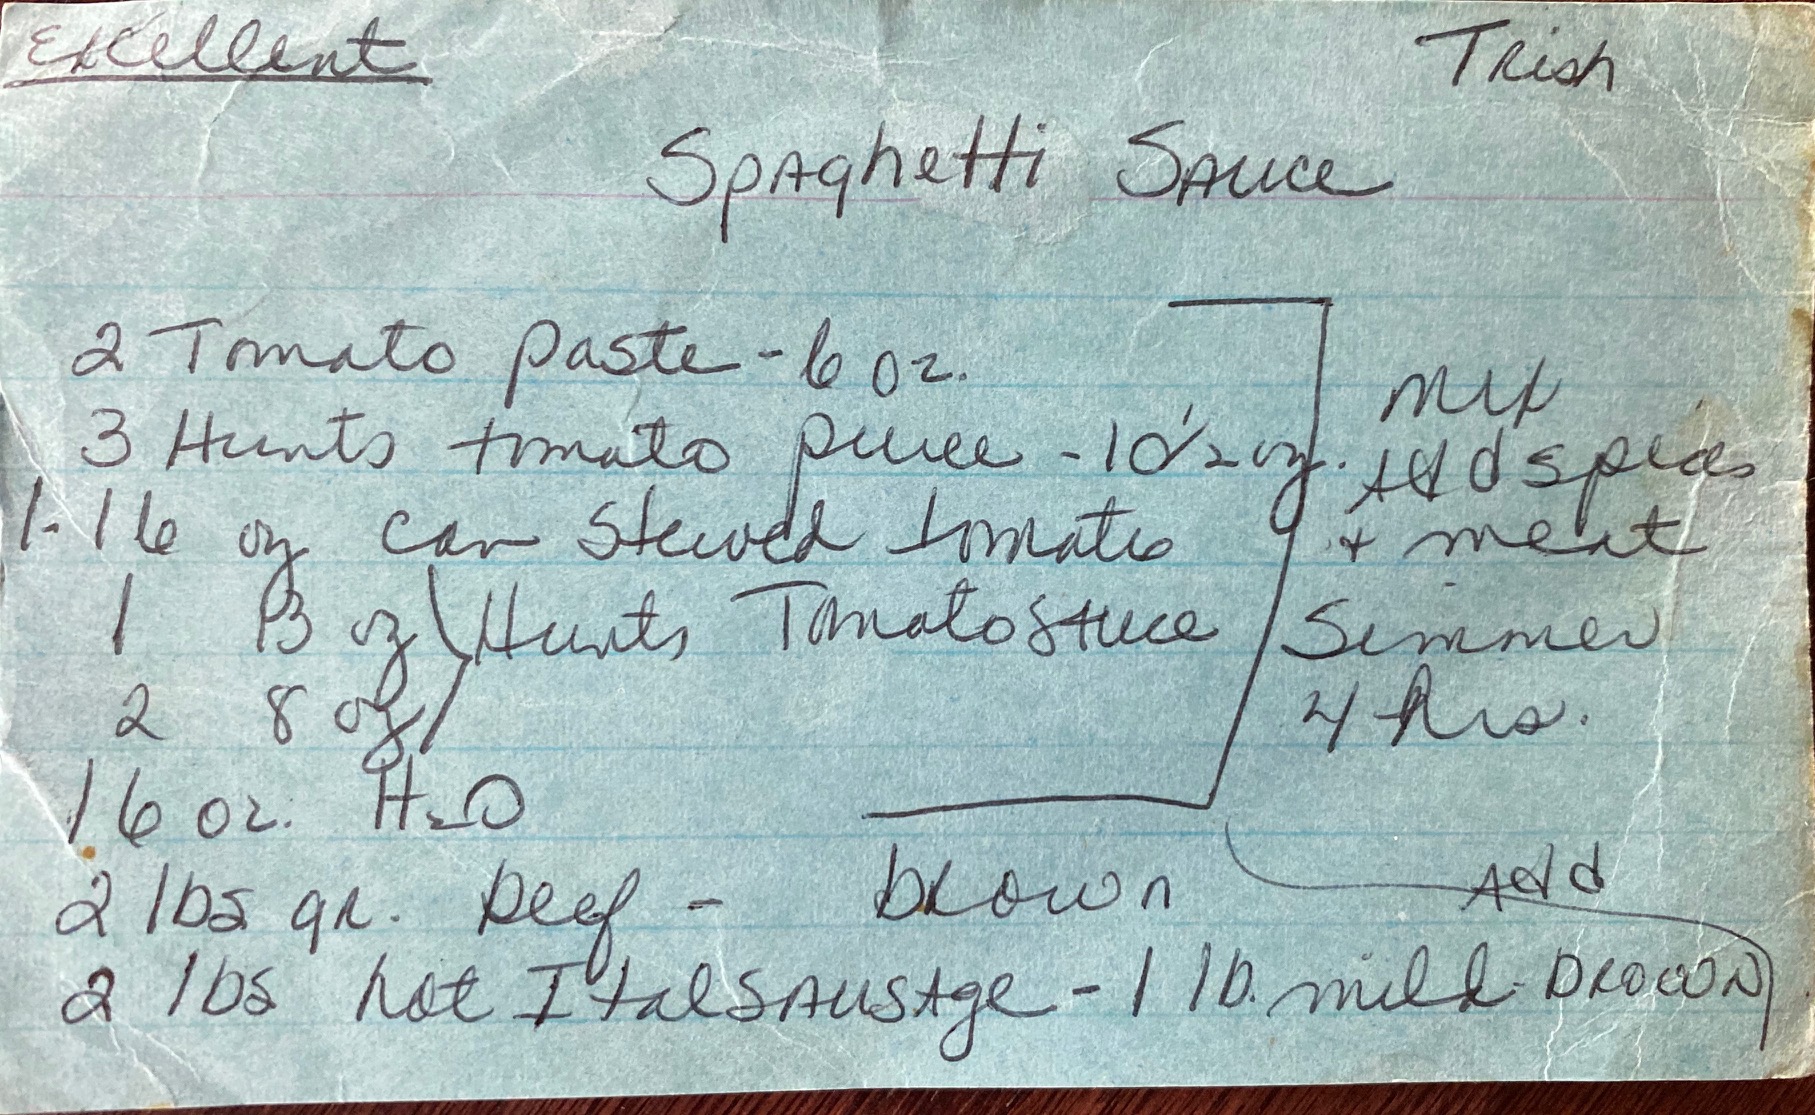 Excellent
Trish
Spaghetti Sauce
2 Tomato paste - 6 oz.
3 Hunts tomato puree - 10 1/2 oz.
1 - 16 oz can Stewed tomato
1 13 oz } Hunts Tomato Sauce
2 8 oz
16 oz. H2O
Mix
Add spices
+ meat
Simmer
4 hrs.
2 lbs gr. beef - brown
Add
2 lbs hot Ital Sausage - 1 lb. mild - brown